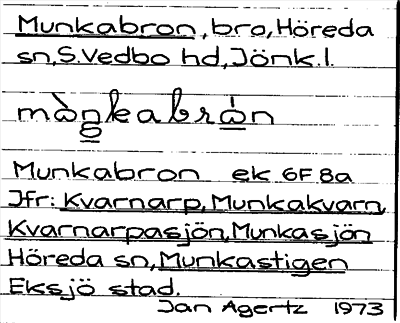 Munkabron, bro, Höreda
sn, S. Vedbo hd, Jönk. l.
mòŋkabrȯ̀n
Munkabron ek 6F 8a
Jfr: Kvarnarp, Munkakvarn,
Kvarnarpasjön, Munkasjön
Höreda sn, Munkastigen
Eksjö stad.
Jan Agertz 1973